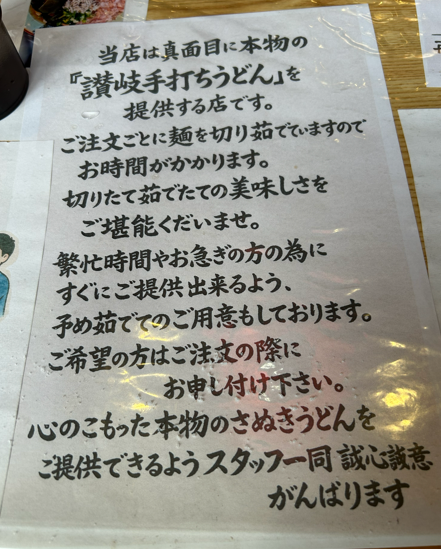 当店は真面目に本物の
『讃岐手打ちうどん』を
提供する店です。
ご注文ごとに麺を切り茹でていますので
お時間がかかります。
切りたて茹でたての美味しさを
ご堪能くだいませ。
繁忙時間やお急ぎの方の為に
すぐにご提供出来るよう、
予め茹でてのご用意もしております。
ご希望の方はご注文の際に
お申し付け下さい。
心のこもった本物のさぬきうどんを
ご提供できるようスタッフ一同 誠心誠意
がんばります